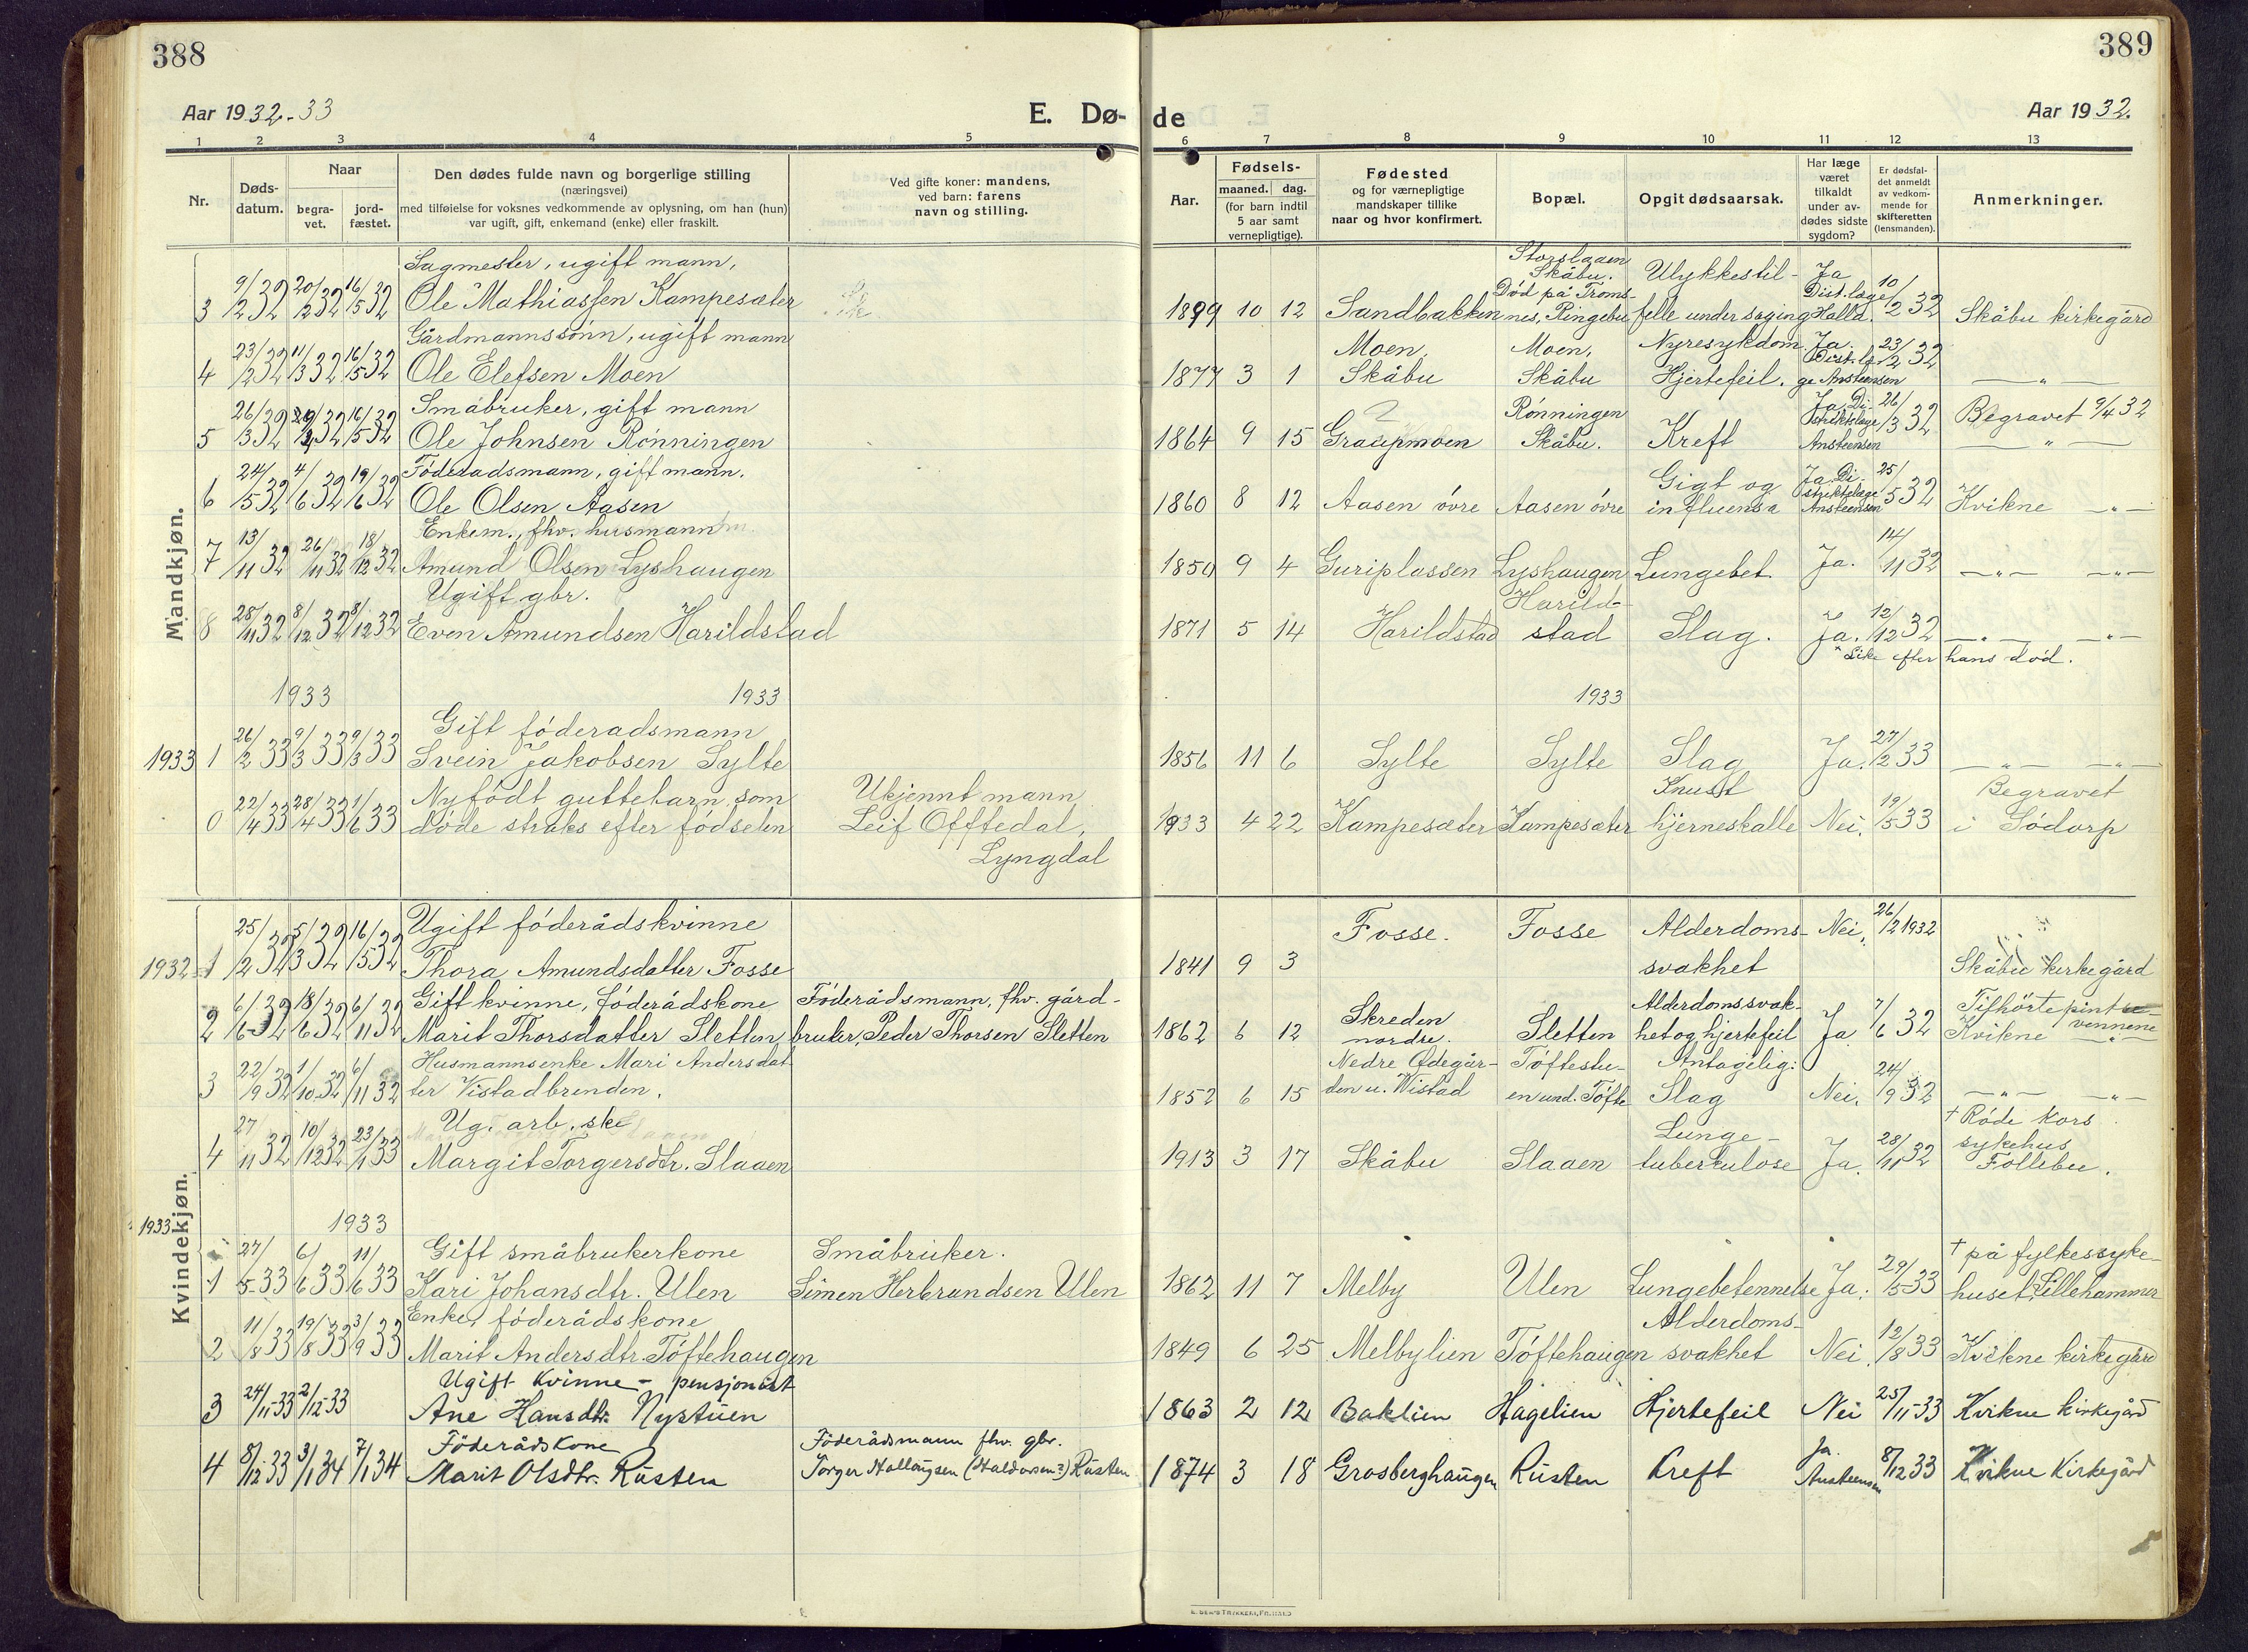 388
389
Aar 1932-33
E. Dø-
de
Aar 1932.
1 2 3 4 5 6 7 8 9 10 11 12 13
Nr.
Døds-
datum.
Naar
begra-
vet.
jord-
fæstet.
Den dødes fulde navn og borgerlige stilling
(næringsvei)
med tilføielse for voksnes vedkommende av oplysning, om han (hun)
var ugift, gift, enkemand (enke) eller fraskilt.
Ved gifte koner: mandens,
ved barn: farens
navn og stilling.
Aar.
Fødsels-
maaned. dag.
(for barn indtil
5 aar samt
vernepligtige).
Fødested
og for værnepligtige
mandskaper tillike
naar og hvor konfirmert.
Bopæl.
Opgit dødsaarsak.
Har læge
været
tilkaldt
under av-
dødes sidste
sygdom?
Er dødsfal-
det anmeldt
av vedkom-
mende for
skifteretten
(lensmanden).
Anmerkninger.
Mandkjøn.
Sagmester, ugift mann,
3 9/2 32 20/2 32 16/5 32 Ole Mathiassen Kampesæter
1899 10 12 Sandbakken
Storslaaen
Skåbu.
Død på Troms-
nes, Ringebu
Ulykkestil-
felle under saging
Ja
Dist.læge
Halld.
10/2 32 Skåbu kirkegård
Gårdmannssønn, ugift mann
4 23/2 32 11/3 32 16/5 32 Ole Elefsen Moen
1877 3 1 Moen,
Skåbu
Moen,
Skåbu
Nyresykdom
Hjertefeil.
Ja.
Dist.læ-
ge Ansteensen
23/2 32 — " —
Småbruker, gift mann
5 26/3 32 16/5 32 Ole Johnsen Rønningen
1864 9 15 Graupmoen
Rønningen
Skåbu.
Kreft
Ja. Di-
striktslæge
Ansteensen
26/3 32 Begravet 9/4 32
— " —
Føderadsmann, gift mann.
6 24/5 32 4/6 32 19/6 32 Ole Olsen Aasen
1860 8 12 Aasen øvre Aasen øvre
Gigt og
influensa
Ja. Di-
striktslæge
Ansteensen
25/5 32 Kvikne — " —
Enkem., fhv. husmann
7 13/11 32 26/11 32 18/12 32 Amund Olsen Lyshaugen
1850 9 4 Guriplassen Lyshaugen Lungebet. Ja. 14/11 32 — " — — " —
Ugift gbr.
8 28/11 32 8/12 32 8/12 32 Even Amundsen Harildstad
1871 5 14 Harildstad
Harild-
stad
Slag. Ja. 12/12 32 — " — — " —
Like efter hans død.
1933 1933 1933
Gift føderadsmann
1933 1 26/2 33 9/3 33 9/3 33 Svein Jakobsen Sylte
1856 11 6 Sylte Sylte Slag Ja. 27/2 33 — " — — " —
Nyfødt guttebarn som
0 22/4 33 28/4 33 1/6 33 døde straks efter fødselen
Ukjennt mann
Leif Offtedal,
Lyngdal
1933 4 22 Kampesæter Kampesæter
Knust
hjerneskalle
Nei. 19/5 33
Begravet
i Sødorp
Kvindekjøn.
Ugift føderådskvinne
1932 1 25/2 32 5/3 32 16/5 32 Thora Amundsdatter Fosse
1841 9 3 Fosse. Fosse
Alderdoms-
svakhet
Nei. 26/2 1932
Skåbu kirkegård
Gift kvinne, føderådskone
2 6/6 32 18/6 32 6/11 32 Marit Thorsdatter Sletten
Føderådsmann, fhv. gård-
bruker, Peder Thorsen Sletten
1862 6 12 Skreden
nordre.
Sletten
Alderdomssvak-
het og hjertefeil
Ja 7/6 32
Tilhørte pinse-
vennene
Kvikne — " —
Husmannsenke Mari Andersdat-
3 22/9 32 1/10 32 6/11 32 ter Vistadbrenden.
1852 6 15 Nedre Ødegår-
den u. Wistad
Tøftestu-
en und. Tøfte
Antagelig:
Slag
Nei. 24/9 32 — " — — " —
Ug. arb.ske
4 27/11 32 10/12 32 23/1 33 Margit Torgersdtr. Slaaen
1913 3 17 Skåbu Slaaen
Lunge-
tuberkulose
Ja. 28/11 32
† Røde Kors
sykehus
Follebu.
1933 1933
Gift småbrukerkone
1 27/5 33 6/6 33 11/6 33 Kari Johansdtr. Ulen
Småbruker.
Simen Herbrandsen Ulen
1862 11 7 Melby Ulen Lungebetennelse Ja. 29/5 33
† på fylkessyke-
huset, Lillehammer
Enke, føderådskone
2 11/8 33 19/8 33 3/9 33 Marit Andersdtr. Tøftehaugen
1849 6 25 Melbylien Tøftehaugen
Alderdoms-
svakhet
Nei. 12/8 33 Kvikne kirkegård
Ugift Kvinne - pensjonist
3 24/11-33 2/12-33 Ane Hansdtr. Nystuen
1863 2 12 Baklien Hagelien Hjertefeil Nei 25/11-33 Kvikne Kirkegård
Føderådskone
4 8/12 33 3/1 34 7/1 34 Marit Olsdtr. Rusten
Føderådsmann fhv. gbr.
Torger Hallaugsen (Haldorsen?) Rusten
1874 3 18 Grosberghaugen Rusten Kreft
Ja.
Austeensen
8/12 33 Kvikne Kirkegård